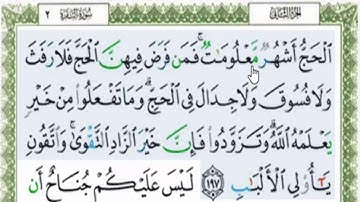 الجزء الثاني ٢ سورة البقرة
ٱلْحَجُّ أَشْهُرٌ مَّعْلُومَٰتٌ ۚ فَمَن فَرَضَ فِيهِنَّ ٱلْحَجَّ فَلَا رَفَثَ
وَلَا فُسُوقَ وَلَا جِدَالَ فِى ٱلْحَجِّ ۗ وَمَا تَفْعَلُوا۟ مِنْ خَيْرٍ
يَعْلَمْهُ ٱللَّهُ ۗ وَتَزَوَّدُوا۟ فَإِنَّ خَيْرَ ٱلزَّادِ ٱلتَّقْوَىٰ ۚ وَٱتَّقُونِ
يَٰٓأُو۟لِى ٱلْأَلْبَٰبِ ١٩٧ لَيْسَ عَلَيْكُمْ جُنَاحٌ أَن